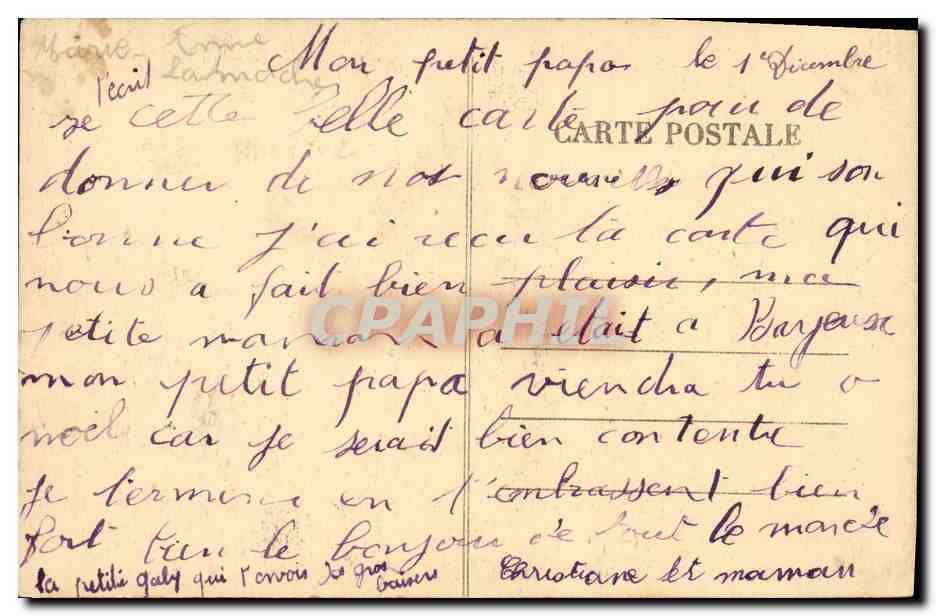 Marie
Mon petit papa le 1e Décembre
t'écrit
se cette belle carte pour de
CARTE POSTALE
donner de nos nouvelles qui son
bonne j'ai recu la carte qui
nous a fait bien plaisir, ma
CPARHTI
petite maman a etait a Bayeux
mon petit papa viendra tu a
noel car je serait bien contente
je termine en t'embrassent bien
fort bien le bonjour de tout le monde
la petite gaby qui t'envois des gros baisers
Christiane et maman